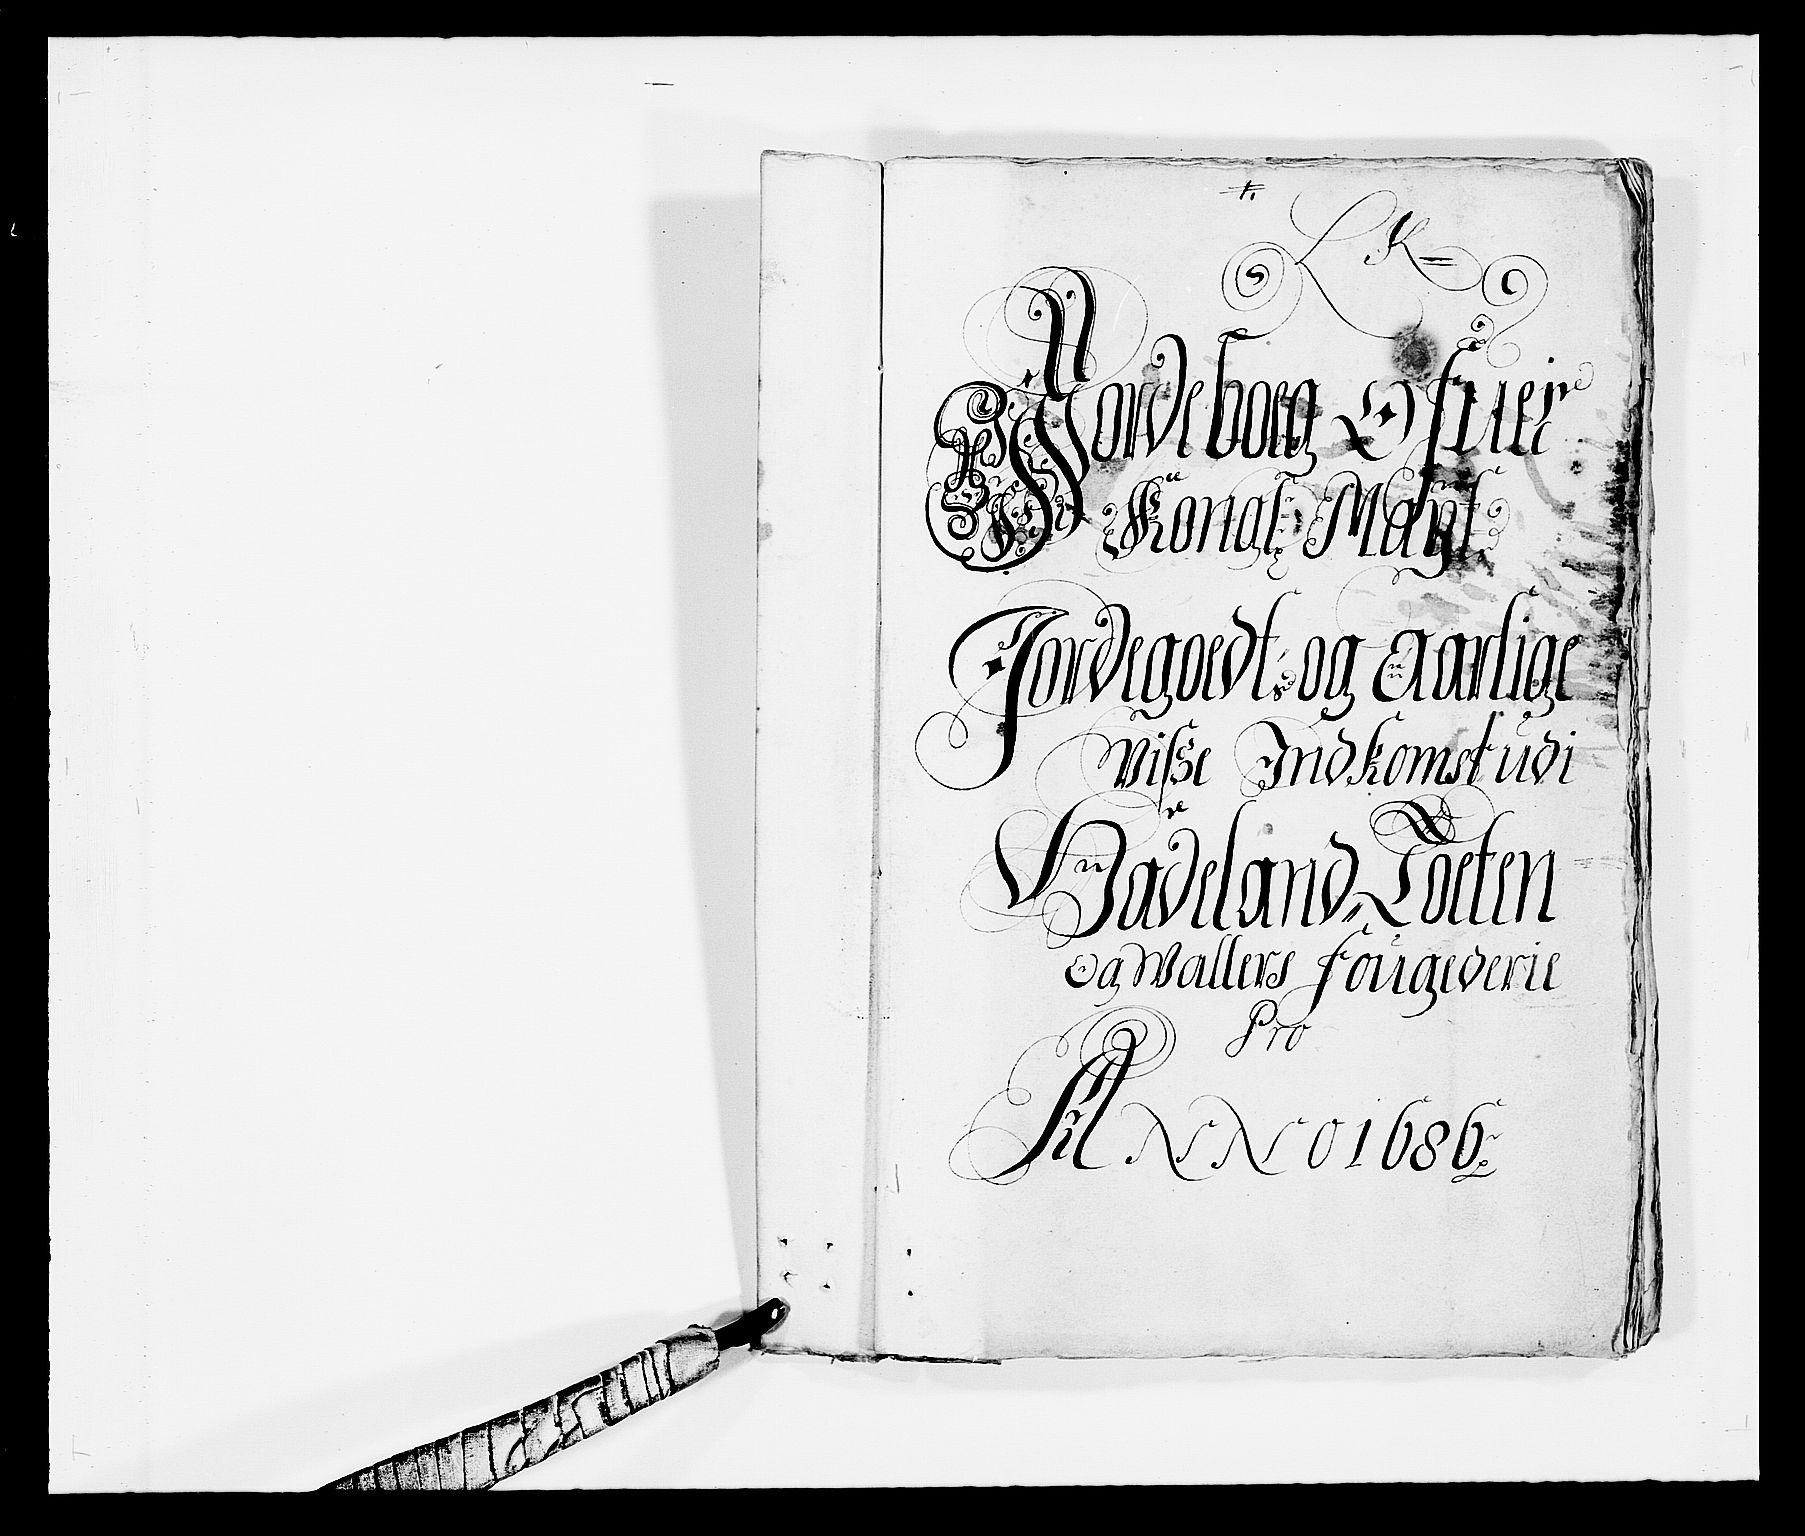 L K =
Jordeboeg Ofuer
Kongl: Mayt:
Jordegoedtz og Aarlige
Visse Indkomst udi
Hadeland, Toeten
og Wallers fougederie
Pro
ANNO 1686